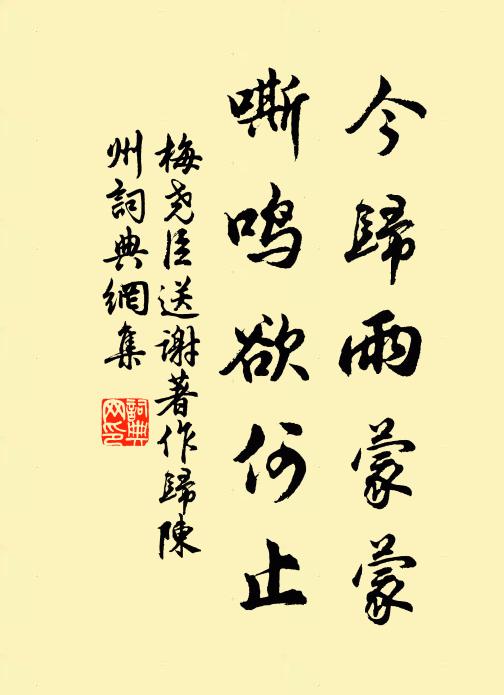 今歸雨蒙蒙
嘶鸣欲何止
梅尧臣送谢著作歸陳
州詞典網集
詞典
网印